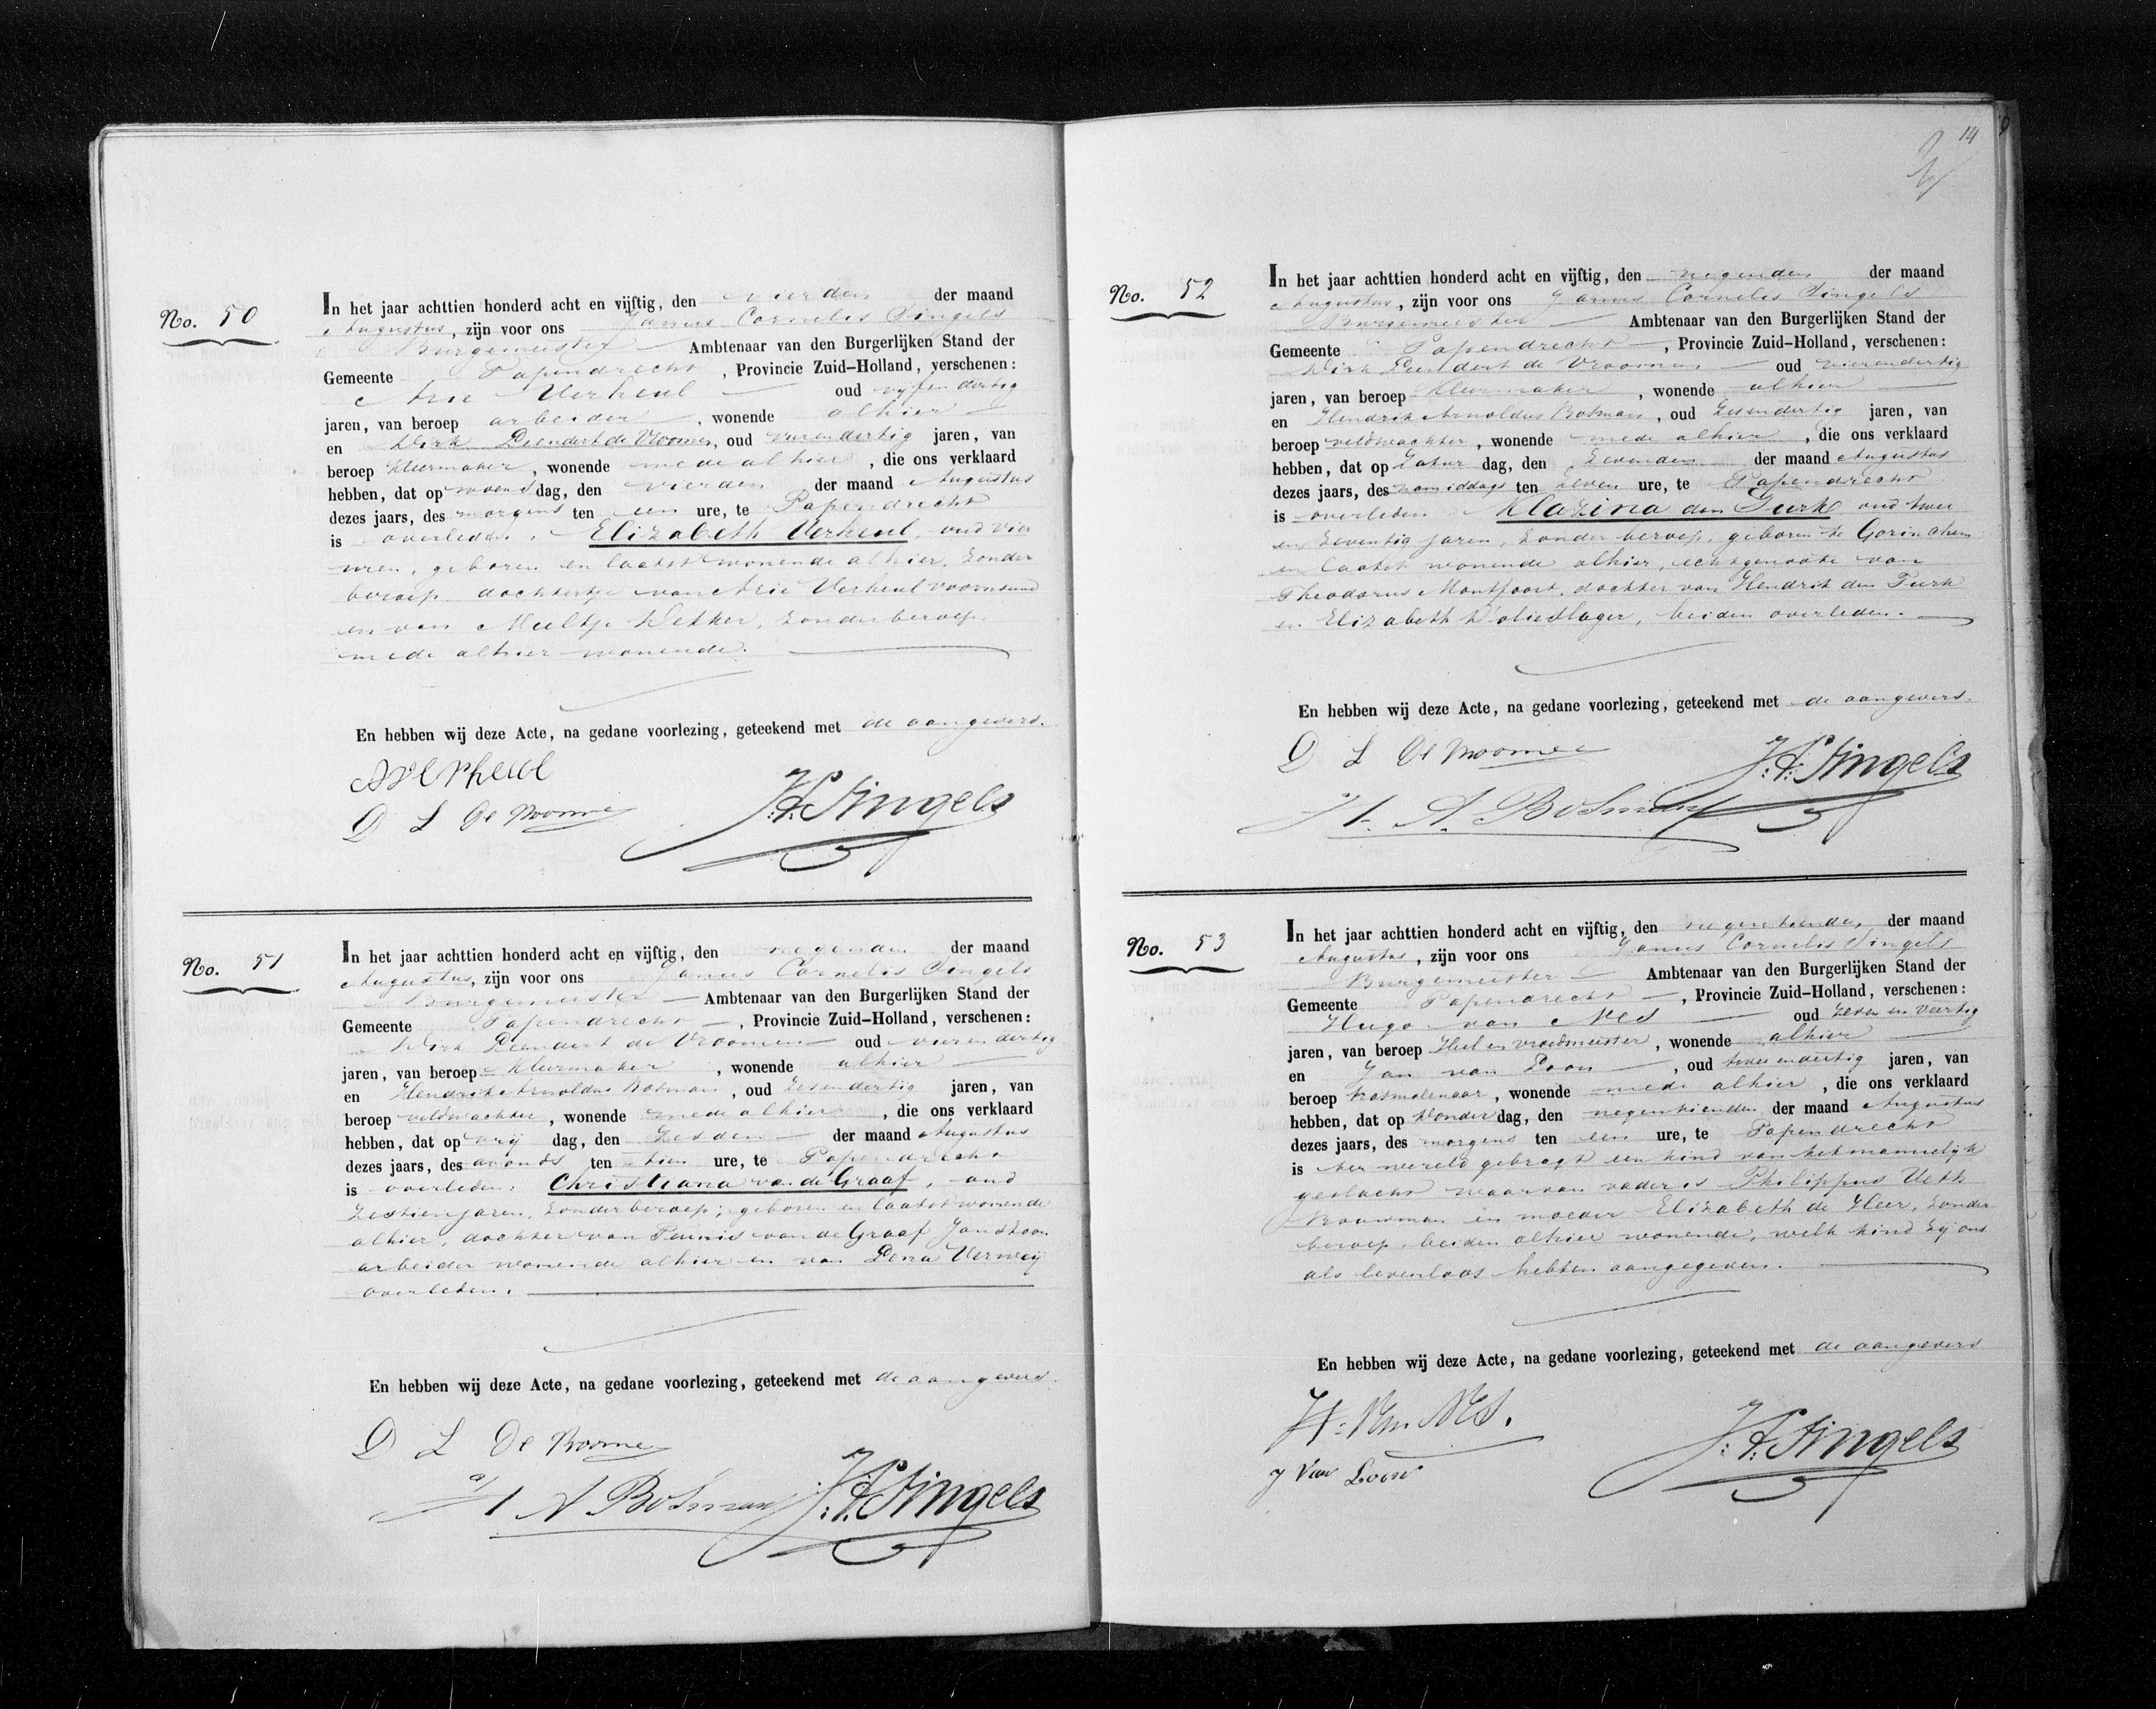 No. 50
In het jaar achttien honderd acht en vijftig, den vierden der maand
Augustus, zijn voor ons Janus Cornelis Singels
Burgemeester Ambtenaar van den Burgerlijken Stand der
Gemeente Papendrecht, Provincie Zuid-Holland, verschenen:
Arie Verheul oud vijfendertig
jaren, van beroep arbeider, wonende alhier
en Dirk Leendert de Vroome, oud vierendertig jaren, van
beroep kleermaker, wonende mede alhier, die ons verklaard
hebben, dat op woensdag, den vierden der maand Augustus
dezes jaars, des morgens ten een ure, te Papendrecht
is overleden: Elizabeth Verheul, oud vier
uren, geboren en laatst wonende alhier, zonder
beroep dochtertje van Arie Verheul voornoemd
en van Meeltje Dekker, zonder beroep.
mede alhier wonende.
En hebben wij deze Acte, na gedane voorlezing, geteekend met de aangevers.
A Verheul
D L De Vroome
J.C. Singels
No. 51
In het jaar achttien honderd acht en vijftig, den negenden der maand
Augustus, zijn voor ons Janus Cornelis Singels
Burgemeester Ambtenaar van den Burgerlijken Stand der
Gemeente Papendrecht, Provincie Zuid-Holland, verschenen:
Dirk Leendert de Vroomen oud vierendertig
jaren, van beroep Kleermaker, wonende alhier
en Hendrik Arnoldus Bosman, oud zesendertig jaren, van
beroep veldwachter, wonende mede alhier, die ons verklaard
hebben, dat op vrijdag, den zesden der maand Augustus
dezes jaars, des avonds ten tien ure, te Papendrecht
is overleden: Christiana van de Graaf, oud
zestien jaren, zonder beroep, geboren en laatst wonende
alhier, dochter van Teunis van de Graaf Janszoon
arbeider wonende alhier en van Lena Verweij
overleden.
En hebben wij deze Acte, na gedane voorlezing, geteekend met de aangevers.
D L De Vroome
H A Bosman
J.C. Singels
14
No. 52
In het jaar achttien honderd acht en vijftig, den negenden der maand
Augustus, zijn voor ons Janus Cornelis Singels
Burgemeester Ambtenaar van den Burgerlijken Stand der
Gemeente Papendrecht, Provincie Zuid-Holland, verschenen:
Dirk Leendert de Vroomen oud vierendertig
jaren, van beroep Kleermaker, wonende alhier
en Hendrik Arnoldus Bosman, oud zesendertig jaren, van
beroep veldwachter, wonende mede alhier, die ons verklaard
hebben, dat op Zaturdag, den zevenden der maand Augustus
dezes jaars, des namiddags ten zeven ure, te Papendrecht
is overleden Klazina den Turk oud twee
en zeventig jaren, zonder beroep, geboren te Gorinchem
en laatst wonende alhier, echtgenoote van
Theodorus Montfoort, dochter van Hendrik den Turk
en Elizabeth d'olieslager, beiden overleden.
En hebben wij deze Acte, na gedane voorlezing, geteekend met de aangevers.
D L De Vroome
H. A. Bosman
J.C. Singels
No. 53
In het jaar achttien honderd acht en vijftig, den negentienden, der maand
Augustus, zijn voor ons Janus Cornelis Singels
Burgemeester Ambtenaar van den Burgerlijken Stand der
Gemeente Papendrecht, Provincie Zuid-Holland, verschenen:
Hugo van Nes oud zeven en veertig
jaren, van beroep Heel en vroedmeester, wonende alhier
en Jan van Loon, oud twee endertig jaren, van
beroep rosmolenaar, wonende mede alhier, die ons verklaard
hebben, dat op Donderdag, den negentienden der maand Augustus
dezes jaars, des morgens ten een ure, te Papendrecht
is ter wereld gebragt een kind van het mannelijk
geslacht waarvan vader is Philippus Veth
Bouwman en moeder Elizabeth de Heer, zonder
beroep, beiden alhier wonende, welk kind zij ons
als levenloos hebben aangegeven.
En hebben wij deze Acte, na gedane voorlezing, geteekend met de aangevers
H. Van Nes.
J Van Loon
J.C. Singels